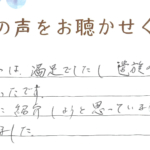 の声をお聴かせく
は、満足でしたし 遺族の
ったです。
に紹介しようと思っていま
ました